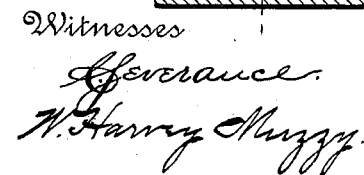 Witnesses
C. Severance.
W. Harvey Muzzy.